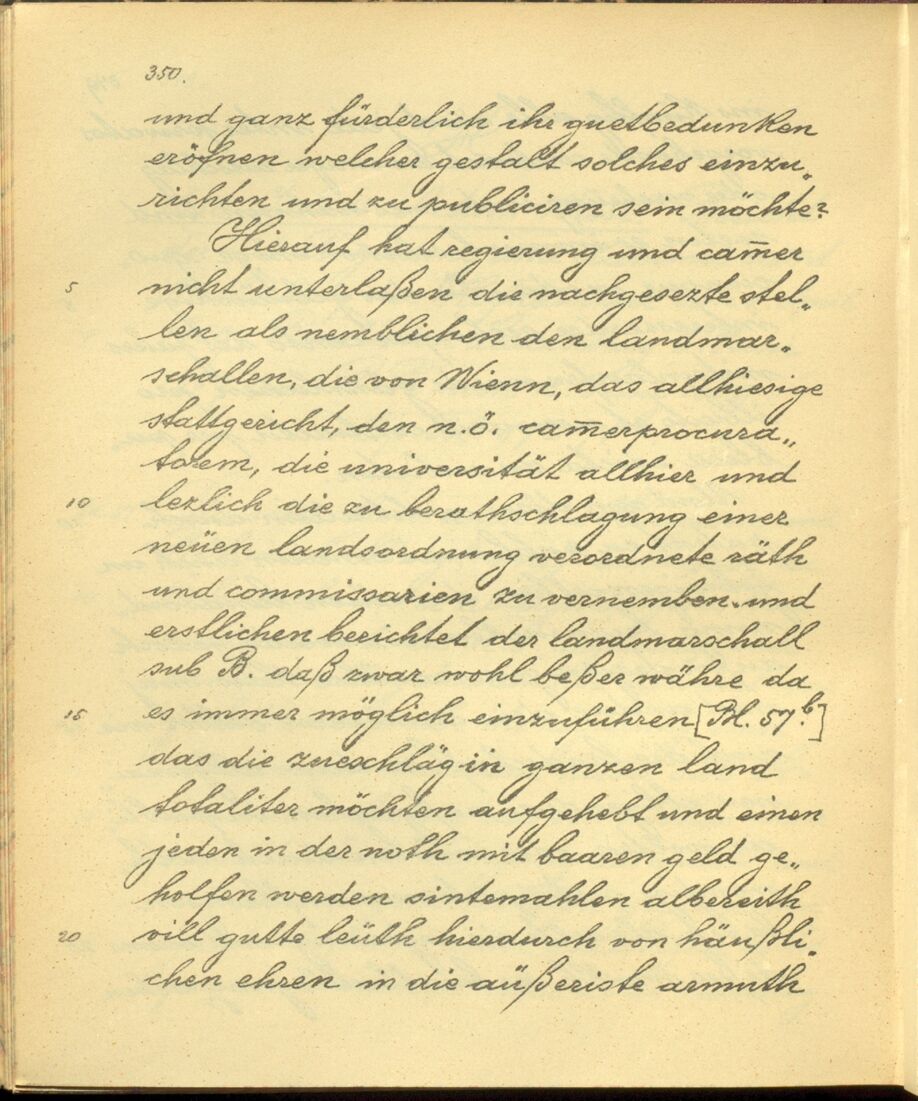 350.
und ganz fürderlich ihr guetbedunken
eröfnen welcher gestalt solches einzu„
richten und zu publiciren sein möchte?
Hierauf hat regierung und cam̅er
5 nicht unterlaßen die nachgesezte stel„
len als nemblichen den landmar„
schallen, die von Wienn, das allhiesige
stattgericht, den n.ö. cam̅erprocura„
torem, die universität allhier und
10 lezlich die zu berathschlagung einer
neüen landsordnung verordnete räth
und commissarien zu vernemben. und
erstlichen berichtet der landmarschall
sub B. daß zwar wohl beßer währe da
15 es immer möglich einzuführen [Bl. 57.b]
das die zureschläg in ganzen land
totaliter möchten aufgehebt und einen
jeden in der noth mit baaren geld ge„
holfen werden sintemahlen albereith
20 vill gutte leüth hierdurch von häußli„
chen ehren in die äüßeriste armuth